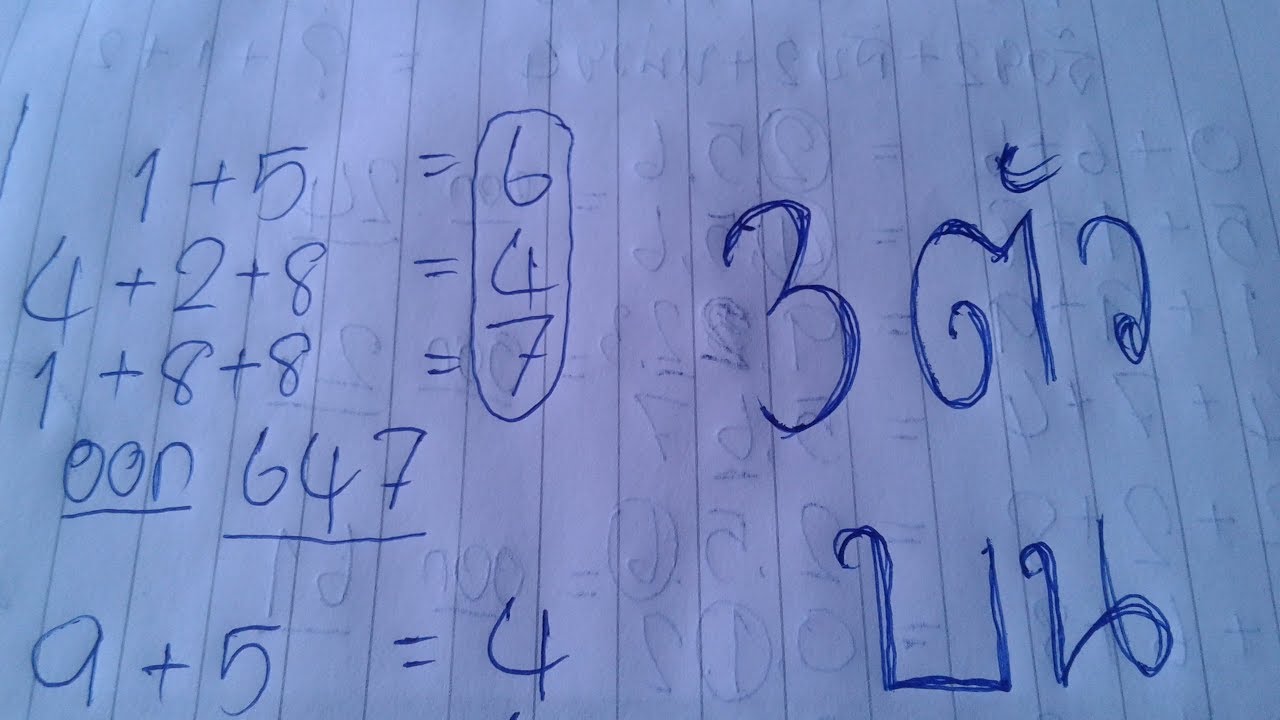 1 + 5 = 6
4 + 2 + 8 = 4
1 + 8 + 8 = 7
ออก 647
9 + 5 = 4
3 ตัว
บน